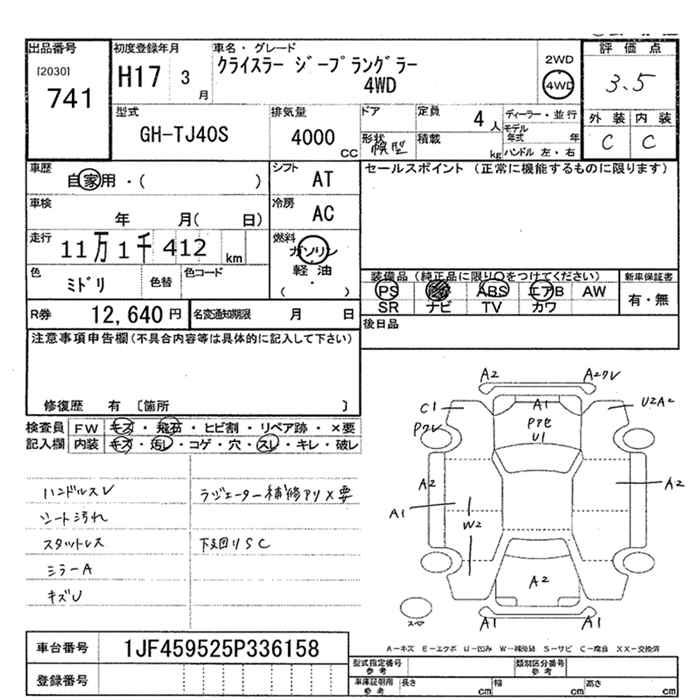 出品番号
[2030]
741
初度登録年月
H17 3月
車名・グレード
クライスラー ジープラングラー
4WD
2WD
4WD
評価点
3.5
外装 内装
C C
型式
GH-TJ40S
排気量
4000 CC
ドア
形状
幌型
定員
4人
積載
kg
ディーラー・並行
モデル年式 年
ハンドル 左・右
車歴
自家用・( )
シフト
AT
セールスポイント (正常に機能するものに限ります)
車検
年 月( 日)
冷房
AC
走行
11万1千412km
燃料
ガソリン
軽油
・
( )
色
ミドリ
色替
色コード
装備品 (純正品に限り○をつけてください)
新車保証書
PS ABS エアB AW
有・無
SR ナビ TV カワ
R券 12,640円
名変通知期限 月 日
後日品
注意事項申告欄 (不具合内容等は具体的に記入して下さい)
修復歴 有 [箇所 ]
検査員 FW キズ・飛石・ヒビ割・リペア跡・×要
記入欄 内装 キズ・汚レ・コゲ・穴・スレ・キレ・破レ
ハンドルスレ
ラジエーター補修アリ×要
シート汚れ
スタットレス
下廻りSC
ミラーA
キズU
A2 A2クレ
C1 A1 U2A2
Pクレ Pアセ
U1
A2 A2
A1 W2
A2
スペア A1 A1
A-キズ E-エクボ U-凹み W-補修跡 S-サビ C-腐食 XX-交換済
車台番号 1JF459525P336158
登録番号
型式指定番号
参考
類別区分番号
参考
車庫証明用
参考
長さ cm 幅 cm 高さ cm